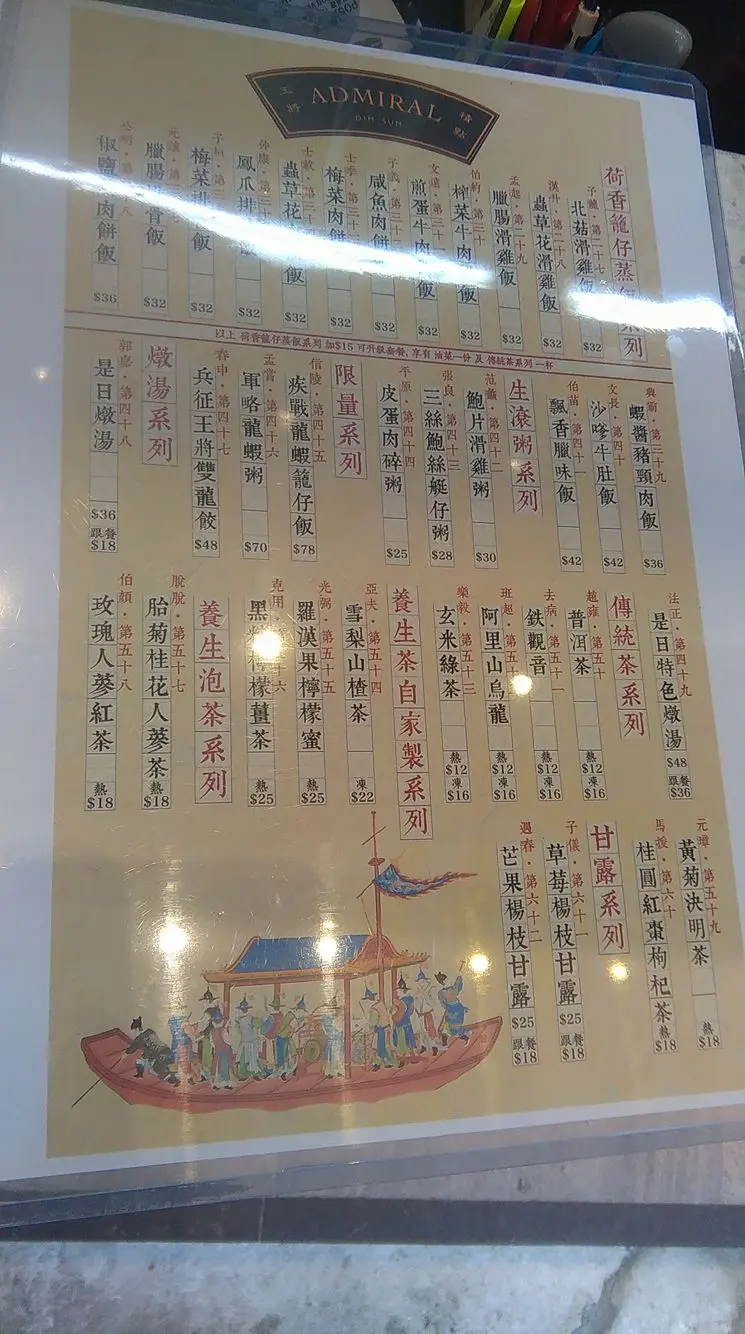 王將
ADMIRAL
DIM SUN
精點
荷香籠仔蒸飯系列
子龍・第二十七
北菇滑雞飯
$32
漢升・第二十八
蟲草花滑雞飯
$32
孟起・第二十九
臘腸滑雞飯
$32
伯約・第三十
榨菜牛肉飯
$32
文遠・第三十一
煎蛋牛肉飯
$32
子義・第三十二
咸魚肉餅飯
$32
士季・第三十三
梅菜肉餅飯
$32
士載・第三十四
蟲草花
飯
$32
仲康・第三十五
鳳爪排骨飯
$32
子桓・第三十六
梅菜排骨飯
$32
元讓・第三十七
臘腸排骨飯
$32
第三十八
椒鹽肉餅飯
$36
以上 荷香籠仔蒸飯系列 加$15 可升級套餐, 享有 油菜一份 及 傳統茶系列 一杯
典韋・第三十九
蝦醬豬頸肉飯
$36
文長・第四十
沙嗲牛肚飯
$42
伯苗・第四十一
飄香臘味飯
$42
生滾粥系列
范蠡・第四十二
鮑片滑雞粥
$30
張良・第四十三
三絲鮑絲艇仔粥
$28
平原・第四十四
皮蛋肉碎粥
$25
限量系列
信陵・第四十五
疾戰龍蝦籠仔飯
$78
孟嘗・第四十六
軍略龍蝦粥
$70
春申・第四十七
兵征王將雙龍餃
$48
燉湯系列
郭嘉・第四十八
是日燉湯
$36
跟餐
$18
法正・第四十九
是日特色燉湯
$48
跟餐
$36
傳統茶系列
趙雍・第五十
普洱茶
熱
$12
凍
$16
去病・第五十一
鐵觀音
熱
$12
凍
$16
班超・第五十二
阿里山烏龍
熱
$12
凍
$16
樂毅・第五十三
玄米綠茶
熱
$12
凍
$16
養生茶自家製系列
亞夫・第五十四
雪梨山楂茶
凍
$22
光弼・第五十五
羅漢果檸檬蜜
熱
$25
克用・第五十六
黑糖檸檬薑茶
熱
$25
養生泡茶系列
脫脫・第五十七
胎菊桂花人蔘茶
熱
$18
伯顏・第五十八
玫瑰人蔘紅茶
熱
$18
元璋・第五十九
黃菊決明茶
熱
$18
馬援・第六十
桂圓紅棗枸杞茶
熱
$18
甘露系列
子儀・第六十一
草莓楊枝甘露
$25
跟餐
$18
遇春・第六十二
芒果楊枝甘露
$25
跟餐
$18